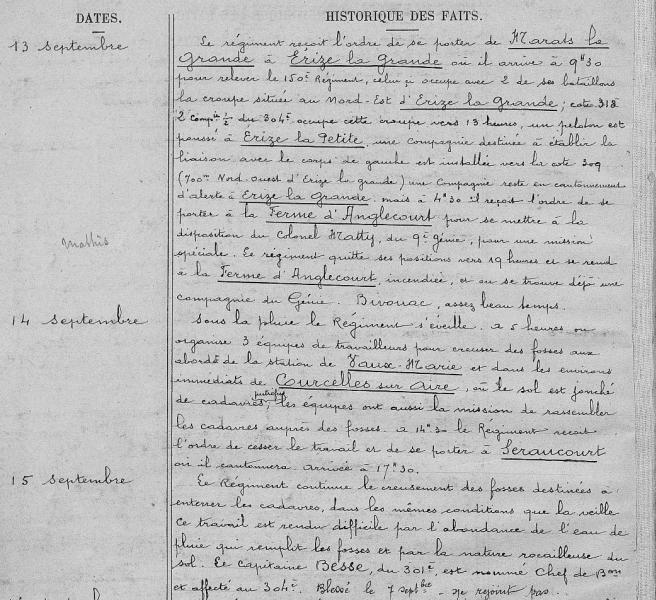 DATES.
HISTORIQUE DES FAITS.
13 Septembre
Le régiment reçoit l'ordre de se porter de Marats la
Grande à Erize la Grande où il arrive à 9h30
pour relever le 150e Régiment, celui ci occupe avec 2 de ses bataillons
la croupe située au Nord-Est d'Erize la Grande; cote 318
2 Compies 1/2 du 304e occupe cette croupe vers 13 heures, un peloton est
poussé à Erize la Petite, une compagnie destinée à établir la
liaison avec le corps de gauche est installée vers la cote 309
(700m Nord-Ouest d'Erize la grande) une Compagnie reste en cantonnement
d'alerte à Erize la Grande. mais à 4h30 il reçoit l'ordre de se
porter à la Ferme d'Anglecourt pour se mettre à la
Mathis
disposition du Colonel Matty, du 9e génie, pour une mission
spéciale. Le régiment quitte ses positions vers 19 heures et se rend
à la Ferme d'Anglecourt, incendiée, et ou se trouve déjà une
compagnie du Génie. Bivouac, assez beau temps.
14 Septembre
Sous la pluie le Régiment s'éveille. a 5 heures on
organise 3 équipes de travailleurs pour creuser des fosses aux
abords de la station de Vaux-Marie et dans les environs
immédiats de Courcelles sur Aire, où le sol est jonché
putréfiés
de cadavres, les équipes ont aussi la mission de rassembler
les cadavres auprès des fosses. a 14h30 le Régiment reçoit
l'ordre de cesser le travail et de se porter à Seraucourt
où il cantonnera. arrivée à 17h30.
15 Septembre
Le Régiment continue le creusement des fosses destinées à
enterrer les cadavres, dans les mêmes conditions que la veille
Ce travail est rendu difficile par l'abondance de l'eau de
pluie qui remplit les fosses et par la nature rocailleuse du
sol. Le capitaine Besse, du 301e, est nommé Chef de Bon
et affecté au 304e. Blessé le 7 septbre - ne rejoint pas.